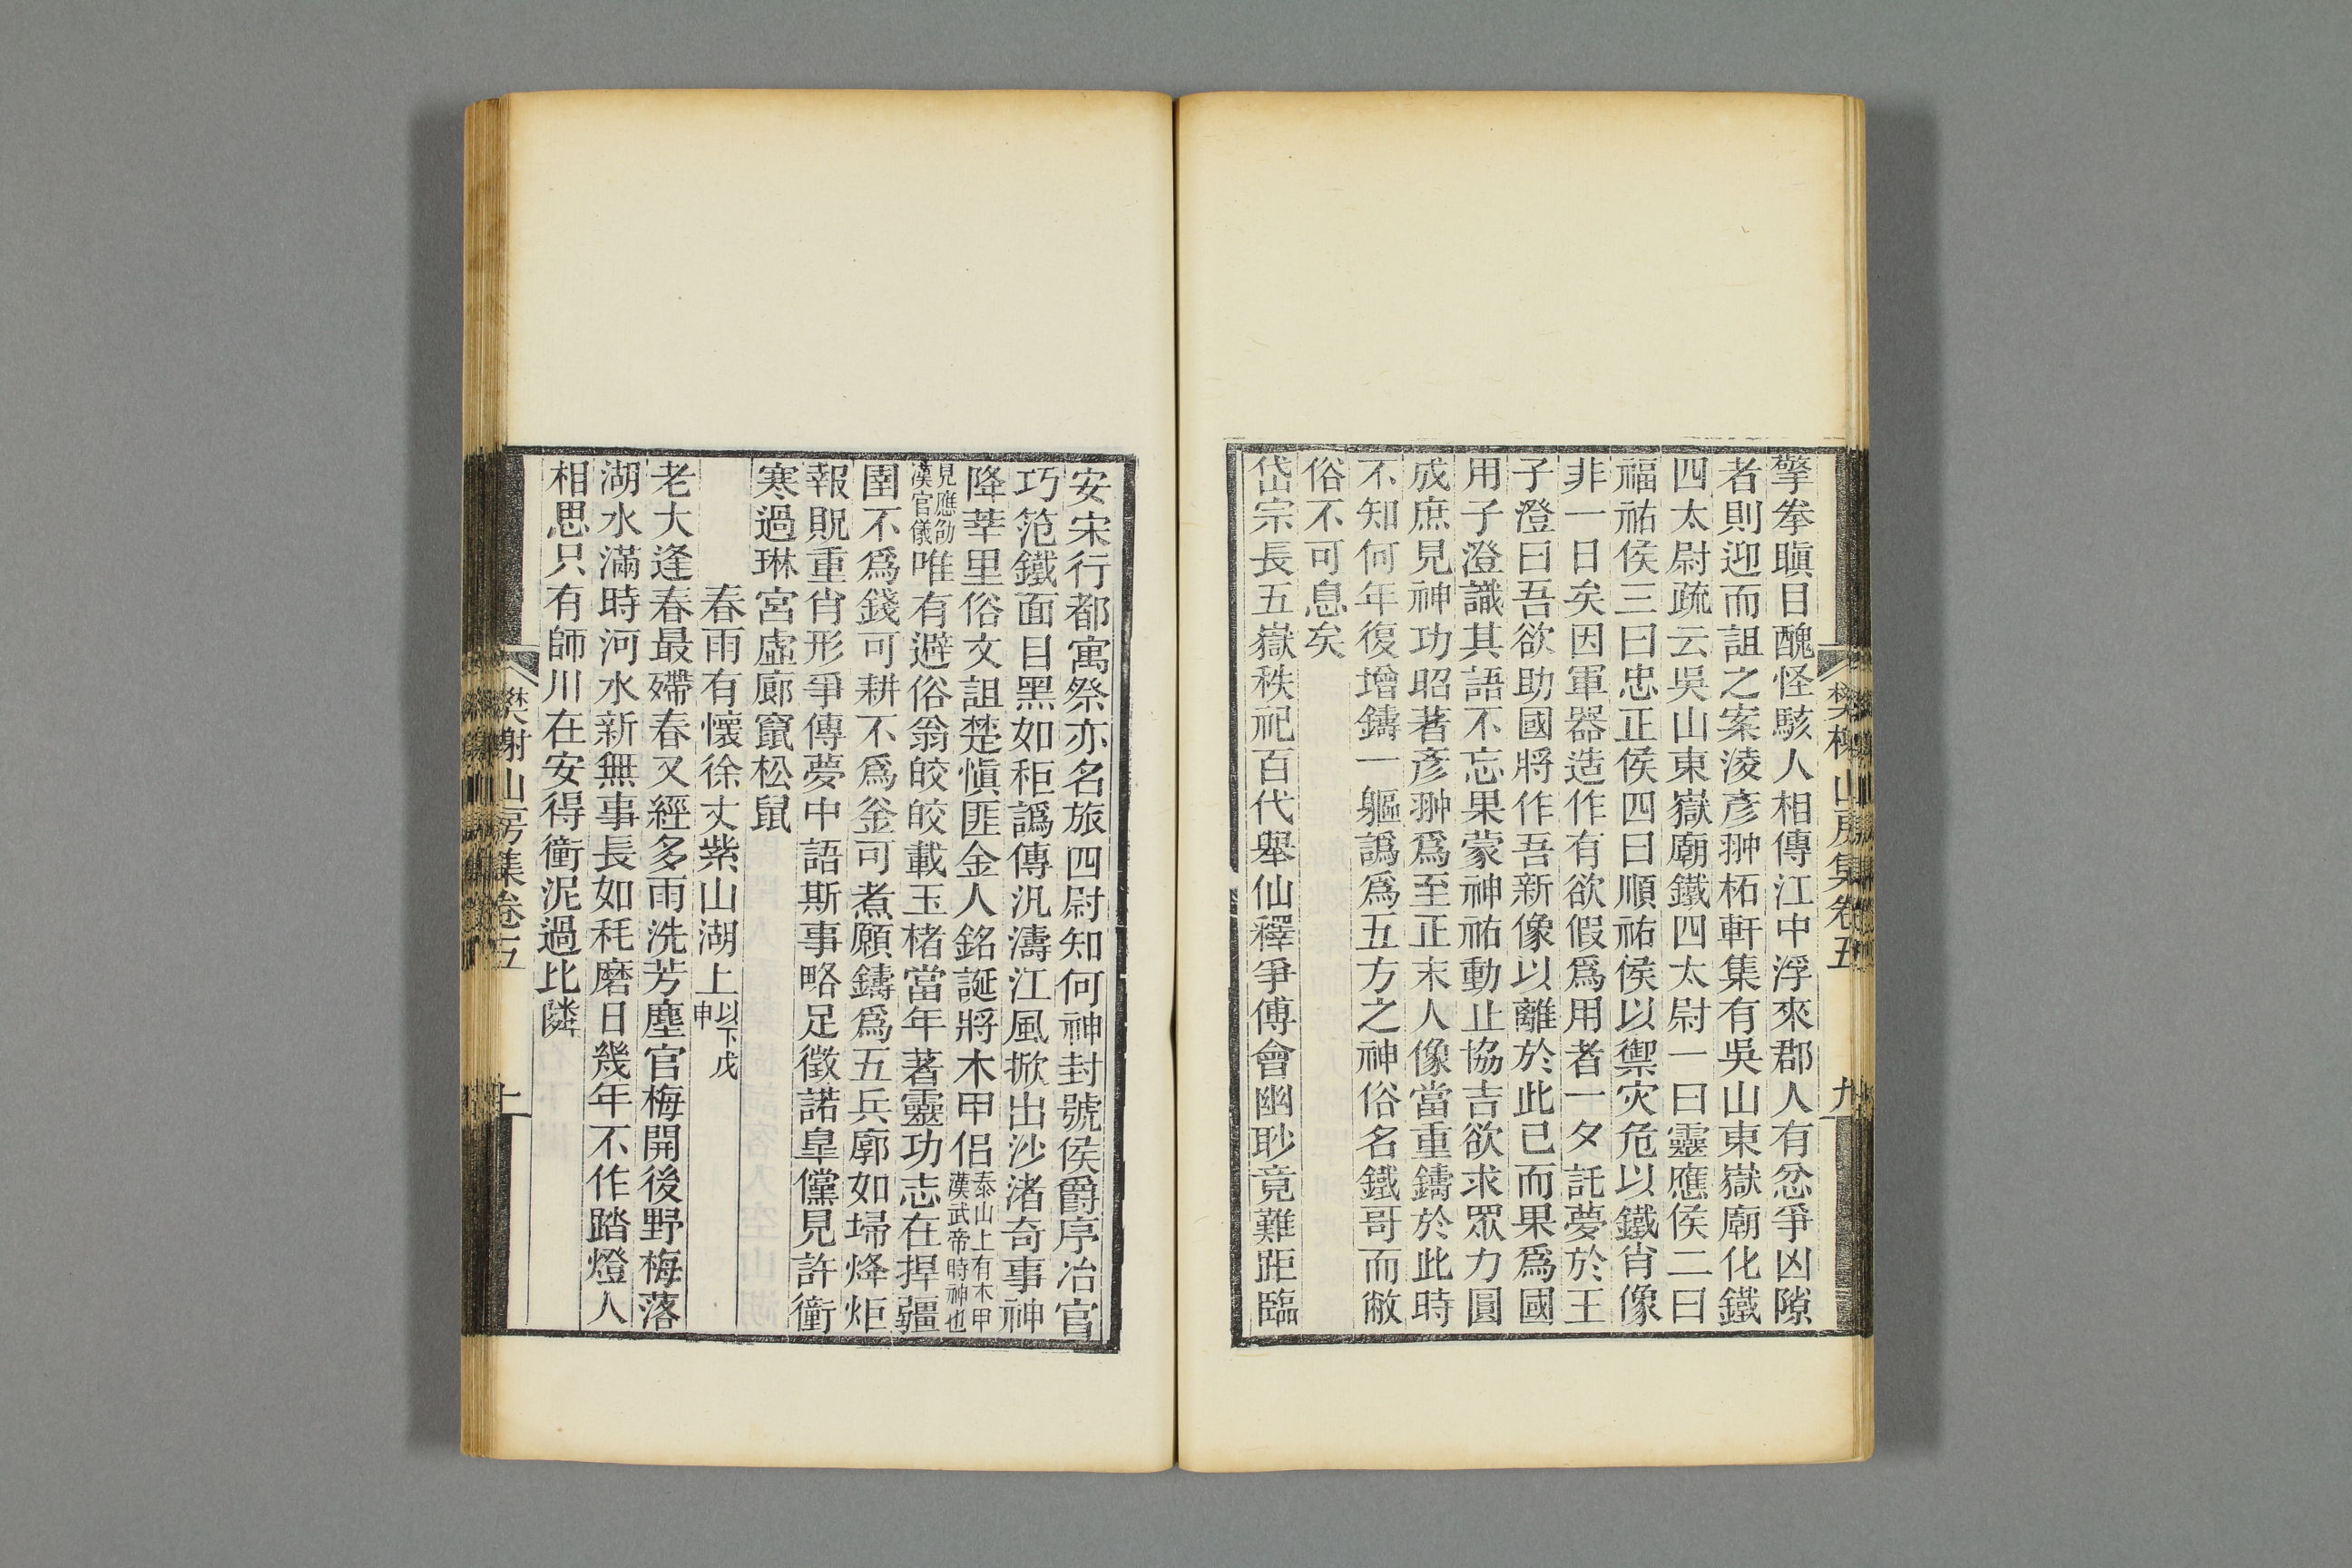 擎拳瞋目醜怪駭人相傳江中浮來郡人有忿爭凶隙
者則迎而詛之案淩彥翀柘軒集有吳山東嶽廟化鐵
四太尉疏云吳山東嶽廟鐵四太尉一曰靈應侯二曰
福祐侯三曰忠正侯四曰順祐侯以禦灾危以鐵肖像
非一日矣因軍器造作有欲假爲用者一夕託夢於王
子澄曰吾欲助國將作吾新像以離於此已而果爲國
用子澄識其語不忘果蒙神祐動止協吉欲求眾力圓
成庶見神功昭著彥翀爲至正末人像當重鑄於此時
不知何年復增鑄一軀譌爲五方之神俗名鐵哥而敝
俗不可息矣
岱宗長五嶽秩祀百代舉仙釋爭傅會幽眇竟難距臨
樊榭山房集卷五
九
安宋行都寓祭亦名旅四尉知何神封號侯爵序冶官
巧笵鐵面目黑如秬譌傳汎濤江風掀出沙渚奇事神
降莘里俗文詛楚愼匪金人銘誕將木甲侶泰山上有木甲漢武帝時神也
見應劭漢官儀唯有避俗翁皎皎載玉楮當年著靈功志在捍疆
圉不爲錢可耕不爲釜可煮願鑄爲五兵廓如埽烽炬
報貺重肖形爭傳夢中語斯事略足徵諾皐儻見許衝
寒過琳宮虛廊竄松鼠
春雨有懷徐丈紫山湖上以下戊申
老大逢春最殢春又經多雨洗芳塵官梅開後野梅落
湖水滿時河水新無事長如秏磨日幾年不作踏燈人
相思只有師川在安得衝泥過比隣
樊榭山房集卷五